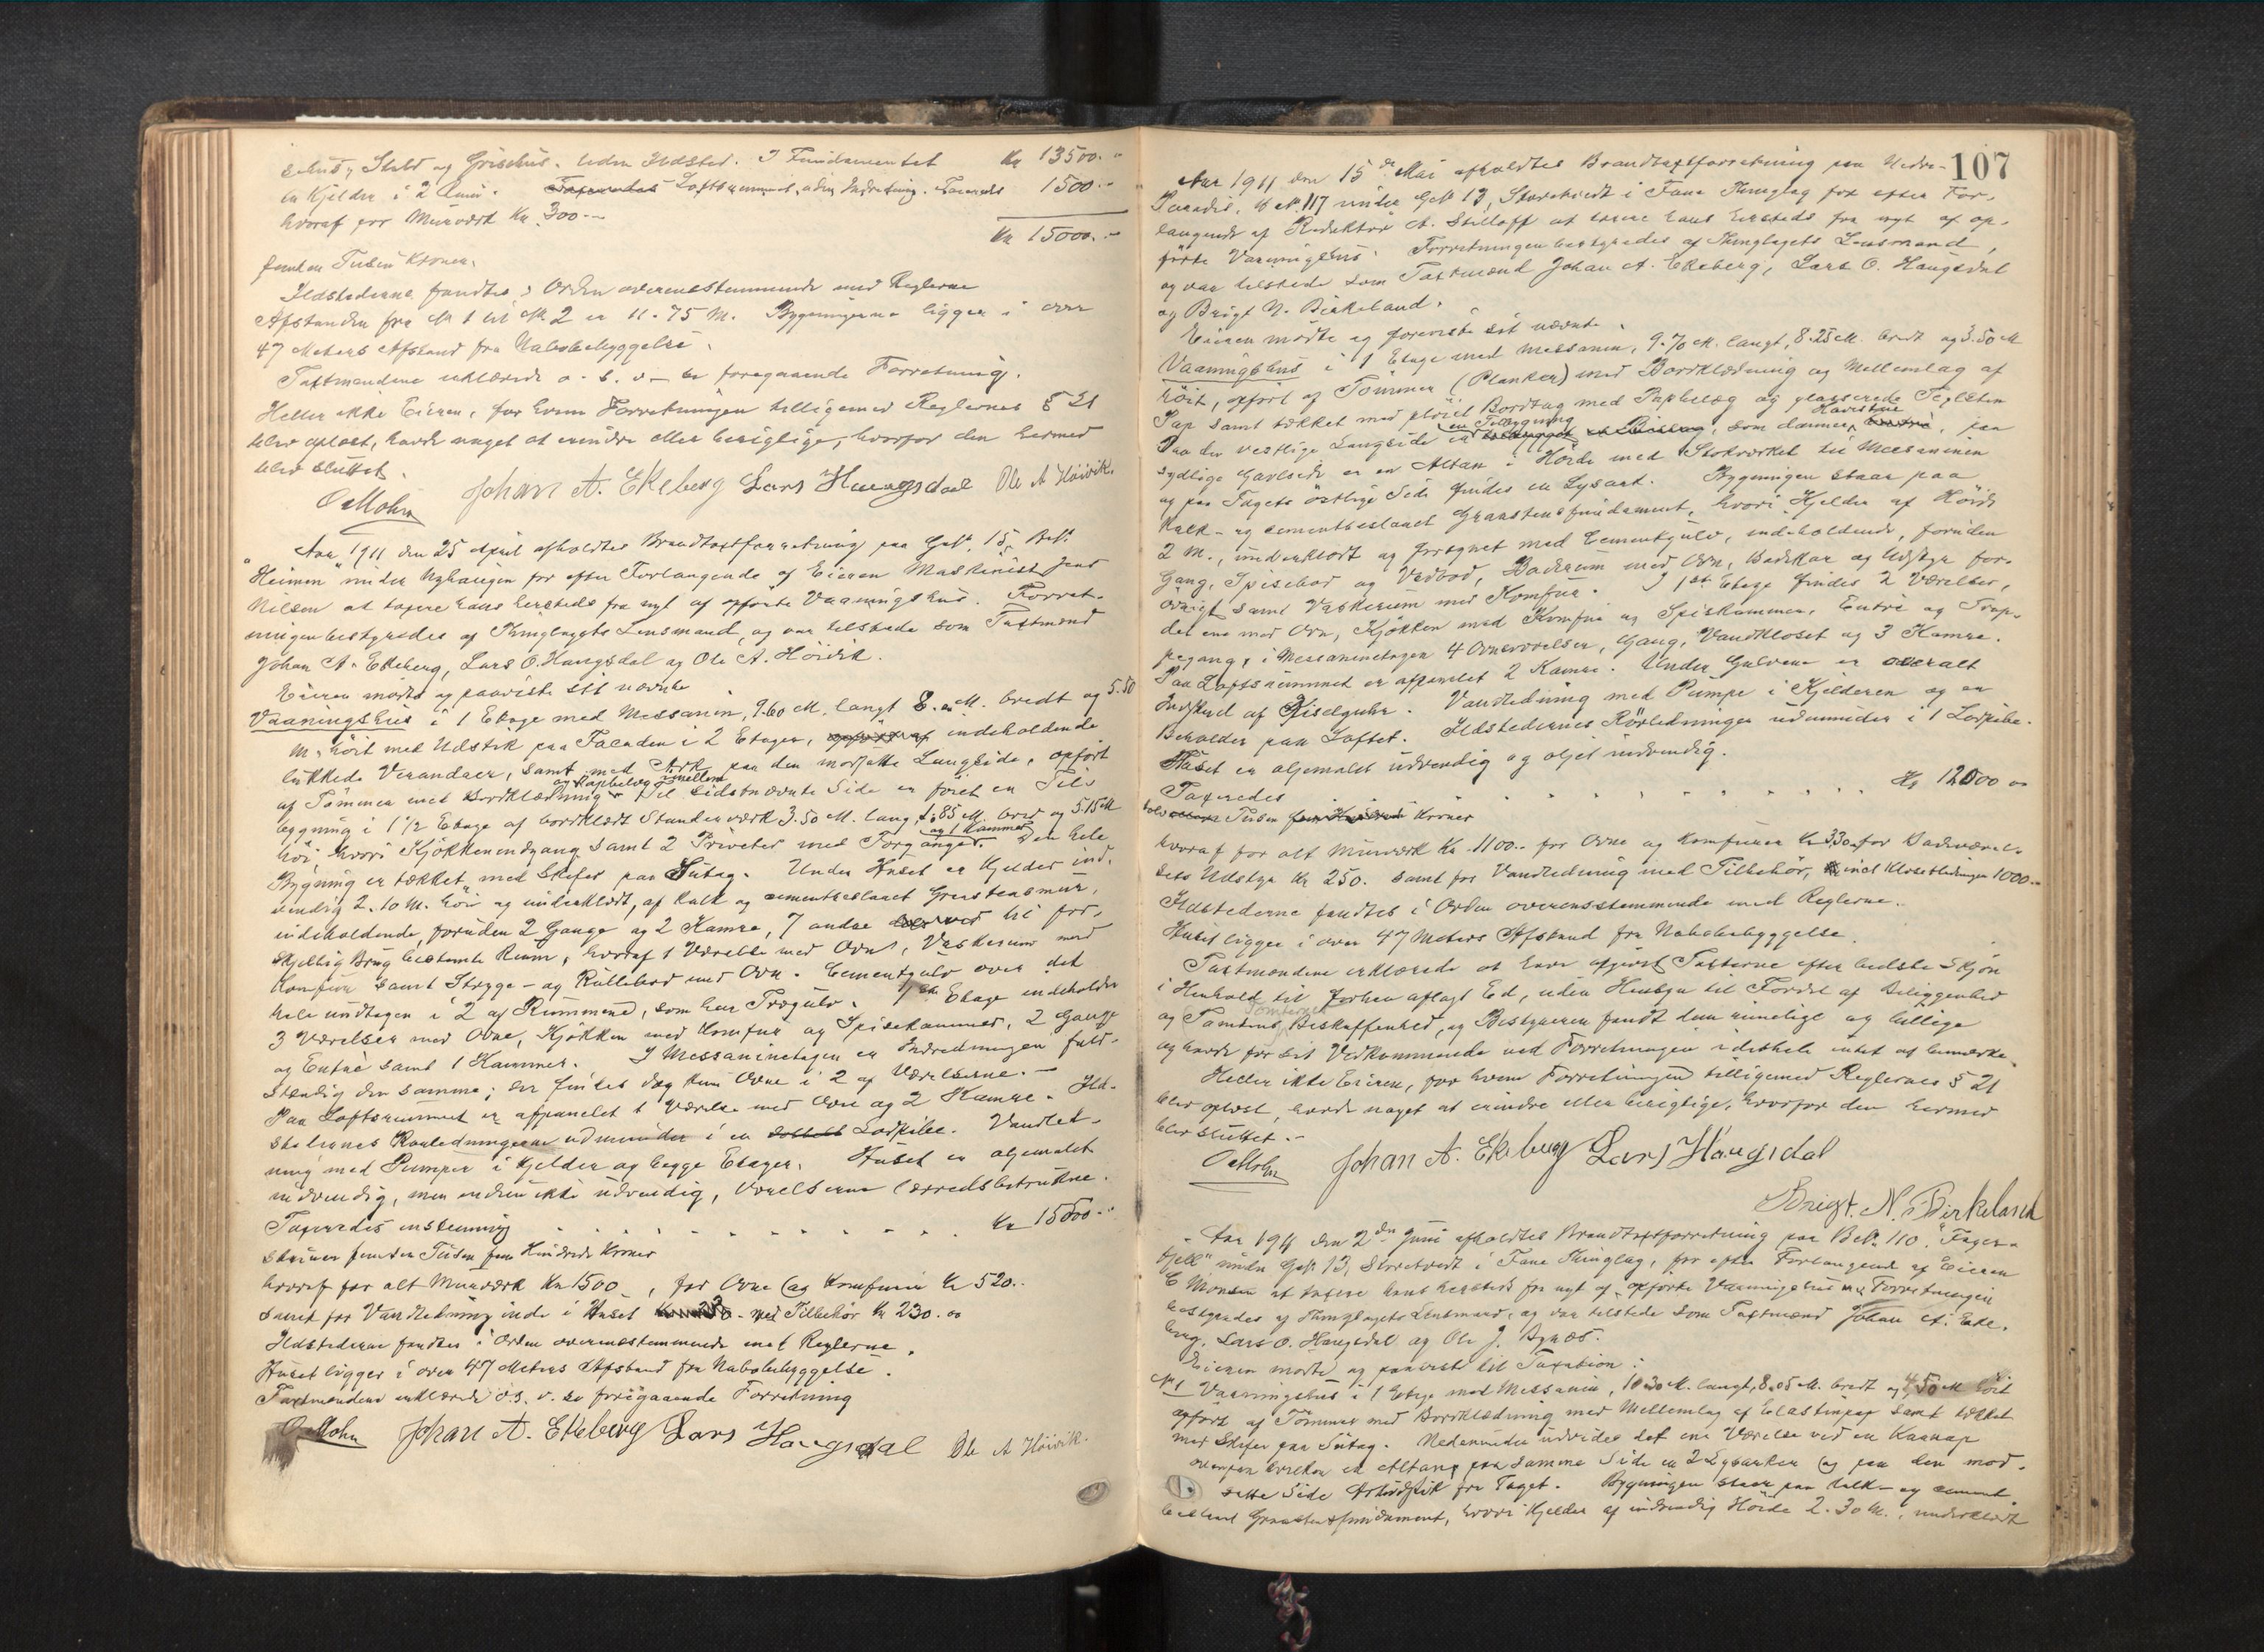 Kr 13500.-
en Kjelder i 2 Rum. Loftsrummet uden Indredning. Taxeredes 1500.-
hvoraf for Murværk Kr. 300.-
Kr 15000.-
femten Tusen Kroner.
Ildstederne fandtes i Orden overensstemmende med Reglerne
Afstanden fra № 1 til № 2 er 11.75 M. Bygningerne ligger i over
47 Meters Afstand fra Nabobebyggelse.
Taxtmændene erklærede o. s. v. se foregaaende Forretning.
Heller ikke Eieren, for hvem Forretningen tilligemed Reglernes § 21
blev oplæst, havde noget at erindre eller berigtige, hvorfor den hermed
blev sluttet.
O Mohn Johan A. Ekeberg Lars Haugsdal Ole A Høivik.
Aar 1911 den 25 April afholdtes Brandtaxtforretning paa G№ 15, B№
"Heimen" under for efter Forlangende af Eieren Maskinist Jens
Nilsen at taxere hans hersteds fra nyt af opførte Vaaningshus. Forret-
ningen bestyredes af Thinglagets Lensmand, og var tilstede som Taxtmænd
Johan A. Ekeberg, Lars O. Haugsdal og Ole A. Høivik.
Eieren mødte og paaviste sit nævnte
Vaaningshus i 1 Etage med Messanin, 9.60 M. langt M. bredt og 5.50
M. høit med Udstik paa Facaden i 2 Etager, indeholdende
lukkede Verandaer, samt med Ark paa den modsatte Langside, opført
af Tømmer med Bordklædning og Papbelæg imellem. Til sidstnævnte Side er føiet en Til-
bygning i 1 1/2 Etage af bordklædt Standerværk 3.50 M. lang, 1.85 M. bred og 5.15 M
høi, hvori Kjøkkenindgang samt 2 Priveter med Forgange og 1 Kammer. Den hele
Bygning er tækket med Skifer paa Sutag. Under Huset er Kjelder ind-
vendig 2.10 M. høi og underklædt, af kalk og cementbeslaaet Graastensmur,
indeholdende, foruden 2 Gange og 2 Kamre, 7 andre til for-
skjellig Brug bestemte Rum, hvoraf 1 Værelse med Ovn, Vaskerum med
Komfur samt Stryge- og Rullebod med Ovn. Cementgulv over det
hele undtagen i 2 af Rummene, som har Trægulv. 1ste Etage indeholder
3 Værelser med Ovne, Kjøkken med Komfur og Spisekammer, 2 Gange
og Entré samt 1 Kammer. I Messaninetagen er Indredningen fuld-
stændig den samme; der findes dog kun Ovne i 2 af Værelserne.-
Paa Loftsrummet er afpanelet 1 Værelse med Ovn og 2 Kamre. Ild-
stedernes Rørledningerne udmunder i en Lodpibe. Vandled-
ning med Pumper i Kjelder og begge Etager. Huset er oljemalet
indvendig, men endnu ikke udvendig, Værelserne lærredsbetrukne.
Taxeredes enstemmig Kr 15500.-
skriver femten Tusen fem Hundrede Kroner
hvoraf for alt Murværk Kr 1500, for Ovne og Komfurer Kr 520.-
samt for Vandledning inde i Huset med Tilbehør Kr 230.00
Ildstederne fandtes i Orden overensstemmende med Reglerne.
Huset ligger i over 47 Meters Afstand fra Nabobebyggelse.
Taxtmændene erklærede o. s. v. se foregaaende Forretning
O Mohn Johan A. Ekeberg Lars Haugsdal Ole A Høivik.
107
Aar 1911 den 15de Mai afholdtes Brandtaxtforretning paa Nedre-
Paradis, B№ 117 under G№ 13, Storetvedt i Fane Thinglag for efter For-
langende af Redaktør A. Stilloff at taxere hans hersteds fra nyt af op-
førte Vaaningshus. Forretningen bestyredes af Thinglagets Lensmand,
og var tilstede som Taxtmænd Johan A. Ekeberg, Lars O. Haugsdal
og Brigt N. Birkeland.
Eieren mødte og foreviste sit nævnte
Vaaningshus i 1 Etage med Messanin, 9.70 M. langt, 8.25 M. bredt og 3.50 M
høit, opført af Tømmer (Planker) med Bordklædning og Mellemlag af
Pap samt tækket med pløiet Bordtag med Papbelæg og glasserede Teglsten
Paa den vestlige Langside er en Tilbygning, som danner Havestue, paa
sydlige Gavlside er en Altan i Høide med Stokværket til Messaninen
og paa Tagets østlige Side findes en Lysark. Bygningen staar paa
kalk- og cementbeslaaet Graastensfundament, hvori Kjelder af Høide
2 M., underklædt og forsynet med Cementgulv, indeholdende, foruden
Gang, Spisebod og Vedbod, Baderum med Ovn, Badekar og Udstyr for-
øvrigt samt Vaskerum med Komfur. I 1ste Etage findes 2 Værelser,
det ene med Ovn, Kjøkken med Komfur og Spiskammer, Entré og Trap-
pegang, i Messaninetagen 4 Ovnsværelser, Gang, Vandkloset og 3 Kamre.
Paa Loftsrummet er afpanelet 2 Kamre. Under Gulvene er overalt
Indskud af Kiselguhr. Vandledning med Pumpe i Kjelderen og en
Beholder paa Loftet. Ildstedernes Rørledninger udmunder i 1 Lodpibe.
Huset er oljemalet udvendig og oljet indvendig.
Taxeredes Kr 12000 00
tolv Tusen Kroner
hvoraf for alt Murværk Kr 1100.- for Ovne og Komfurer Kr 330. for Badeværel-
sets Udstyr Kr 250. samt for Vandledning med Tilbehør, incl Klosetledningen 1000.-
Ildstederne fandtes i Orden overensstemmende med Reglerne.
Huset ligger i over 47 Meters Afstand fra Nabobebyggelse.
Taxtmændene erklærede at have afgivet Taxterne efter bedste Skjøn
i Henhold til forhen aflagt Ed, uden Hensyn til Fordel af Beliggenhed
og Tomtens Beskaffenhed, og Bestyreren fandt dem rimelige og billige
og havde for sit Vedkommende ved Forretningen idethele intet at bemærke.
Heller ikke Eieren, for hvem Forretningen tilligemed Reglernes § 21
blev oplæst, havde noget at erindre eller berigtige, hvorfor den hermed
blev sluttet.-
O Mohn Johan A. Ekeberg Lars Haugsdal
Brigt. N. Birkeland
Aar 1911 den 2den Juni afholdtes Brandtaxtforretning paa B№ 110 "Fager-
fjell" under G№ 13, Storetvedt i Fane Thinglag, for efter Forlangende af Eieren
C Monsen at taxere hans hersteds fra nyt af opførte Vaaningshus Forretningen
bestyredes af Thinglagets Lensmand, og var tilstede som Taxtmænd Johan A. Eke-
berg, Lars O. Haugsdal og Ole J.
Eieren mødte og paaviste til Taxation:
№ 1 Vaaningshus i 1 Etage med Messanin, 10.30 M. langt, 8.05 M. bredt og 4.50 M høit
opført af Tømmer med Bordklædning med Mellemlag af samt tækket
med Skifer paa Sutag. Nedenunder udvides det ene Værelse ved en Karnap
ovenpaa hvilken en Altan, paa samme Side er 2 Lysarker og paa den mod-
satte Side fra Taget. Bygningen staar paa kalk- og cement-
beslaaet Graastensfundament, hvori Kjelder af indvendig Høide 2.30 M., underklædt